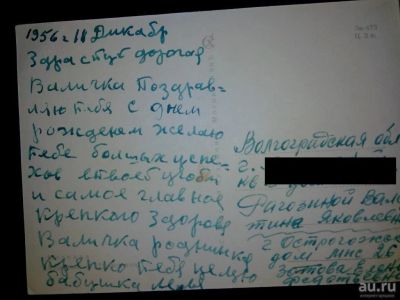 1956 г 18 Дикабр
Здраствуй дорогая
Валичка Поздрав-
ляю тебя с днем
рожденем желаю
тебе болших успе-
хов в твоей учобы
и самое главное
крепкого Здоровя
Валичка роднинка
крепко тебя целую
бабушка
Волгоградская обл
г.
кв
Рагозиной Вале
тина Яковлевн
г Острогожск
дом 26